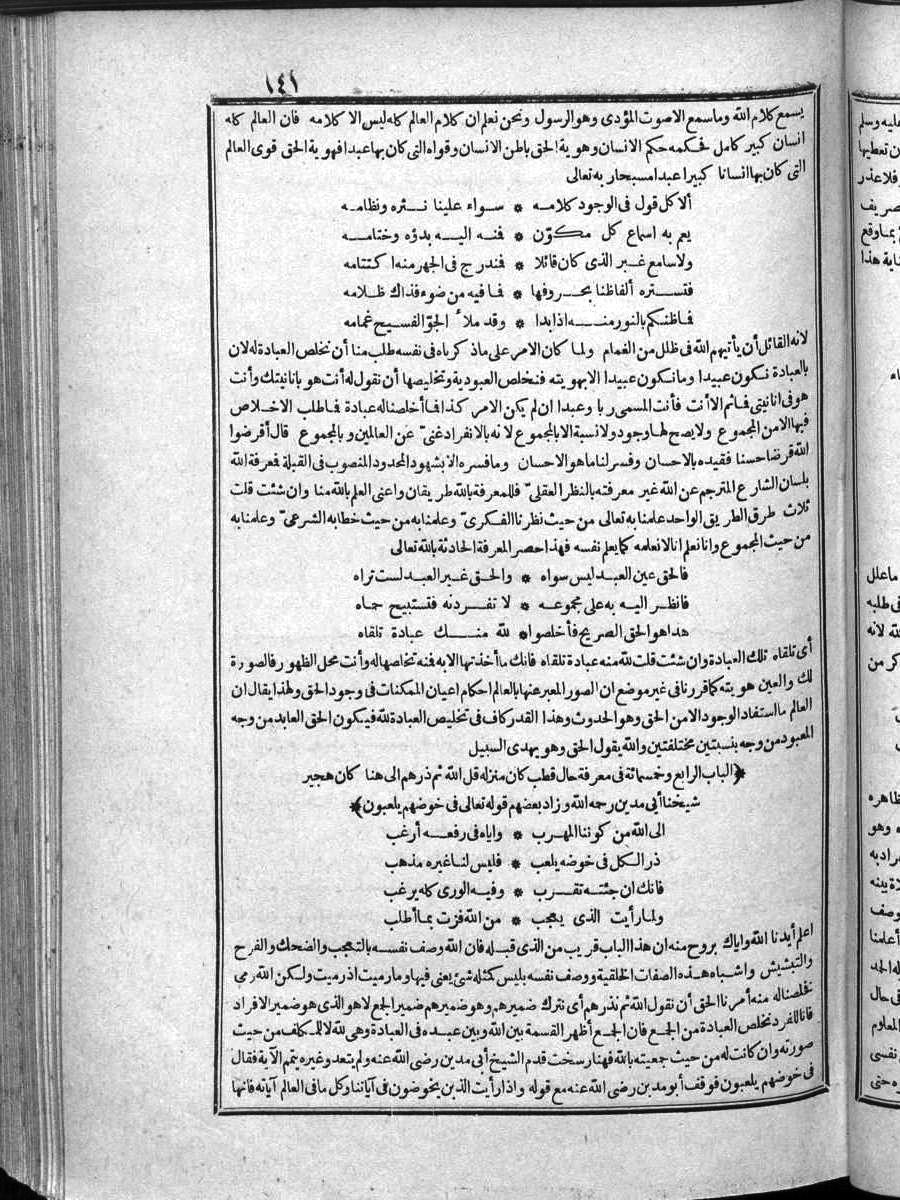 ١٤١
يسمع كلام الله وما سمع الاصوت المؤدى وهو الرسول ونحن نعلم ان كلام العالم كله ليس الا كلامه فان العالم كله
انسان كبير كامل فحكمه حكم الانسان وهوية الحق باطن الانسان وقواه التى كان بها عبدا فهوية الحق قوى العالم
التى كان بها انسانا كبيرا عبدا مسبحا ربه تعالى
ألا كل قول فى الوجود كلامه * سواء علينا نثره ونظامه
يعم به اسماع كل مكوّن * فمنه اليه بدؤه وختامه
ولا سامع غير الذى كان قائلا * فمندرج فى الجهر منه اكتتامه
فتستره ألفاظنا بحروفها * فما فيه من ضوء فذاك ظلامه
فما ظنكم بالنور منه اذا بدا * وقد ملأ الجوّ الفسيح غمامه
لانه القائل أن يأتيهم الله فى ظلل من الغمام ولما كان الامر على ماذكرناه فى نفسه طلب منا أن نخلص العبادة له لان
بالعبادة نكون عبيدا وما نكون عبيدا الا بهويته فنخلص العبودية وتخليصها أن نقول له أنت هو بانانيتك وأنت
هو فى انانيتى فاثم الا أنت فأنت المسمى ربا وعبدا ان لم يكن الامر كذا فما أخلصنا له عبادة فما طلب الاخلاص
فيها الا من المجموع ولا يصح لها وجود ولا نسبة الا بالمجموع لانه بالانفراد غنىّ عن العالمين وبالمجموع قال أقرضوا
الله قرضا حسنا فقيده بالاحسان وفسر لنا ما هو الاحسان وما فسره الا بشهود المحدود المنصوب فى القبلة فمعرفة الله
بلسان الشارع المترجم عن الله غير معرفته بالنظر العقلىّ فللمعرفة بالله طريقان واعنى العلم بالله منا وان شئت قلت
ثلاث طرق الطريق الواحد علمنا به تعالى من حيث نظرنا الفكرىّ وعلمنا به من حيث خطابه الشرعىّ وعلمنا به
من حيث المجموع وانا نعلم انا لا نعلمه كما يعلم نفسه فهذا حصر المعرفة الحادثة بالله تعالى
فالحق عين العبد ليس سواه * والحق غير العبد لست تراه
فانظر اليه به على مجموعه * لا تفردنه فتستبيح حماه
هذا هو الحق الصريح فأخلصوا * لله منك عبادة تلقاه
أى تلقاه تلك العبادة وان شئت قلت لله منه عبادة تلقاه فانك ما أخذتها الا به فمنه تخلصها له وأنت محل الظهور فالصورة
لك والعين هويته كما قررنا فى غير موضع ان الصور المعبر عنها بالعالم احكام اعيان الممكنات فى وجود الحق ولهذا يقال ان
العالم ما استفاد الوجود الا من الحق وهو الحدوث وهذا القدر كاف فى تخليص العبادة لله فيكون الحق العابد من وجه
المعبود من وجه بنسبتين مختلفتين والله يقول الحق وهو يهدى السبيل
﴿الباب الرابع وخمسمائة فى معرفة حال قطب كان منزله قل الله ثم ذرهم الى هنا كان هجير
شيخنا أبى مدين رحمه الله وزاد بعضهم قوله تعالى فى خوضهم يلعبون﴾
الى الله من كوننا المهرب * واياه فى رفعه أرغب
ذر الكل فى خوضه يلعب * فليس لنا غيره مذهب
فانك ان جئته تقرب * وفيه الورى كله يرغب
ولما رأيت الذى يعجب * من الله فزت بما أطلب
اعلم أيدنا الله واياك بروح منه ان هذا الباب قريب من الذى قبله فان الله وصف نفسه بالتعجب والضحك والفرح
والتبشيش واشباه هذه الصفات الخلقية ووصف نفسه بليس كمثله شئ يعنى فيها وما رميت اذ رميت ولكن الله رمى
فخلصناله منه أمرنا الحق أن نقول الله ثم نذرهم أى نترك ضميرهم وهو ضميرهم ضمير الجمع لا هو الذى هو ضمير الافراد
فانا للفرد نخلص العبادة من الجمع فان الجمع أظهر القسمة بين الله وبين عبده فى العبادة وهى لله لا للمكلف من حيث
صورته وان كانت له من حيث جمعيته بالله فهنا رسخت قدم الشيخ أبى مدين رضى الله عنه ولم يتعد وغيره يتمم الآية فقال
فى خوضهم يلعبون فوقف أبو مدين رضى الله عنه مع قوله واذا رأيت الذين يخوضون فى آياتنا وكل ما فى العالم آياته فانها